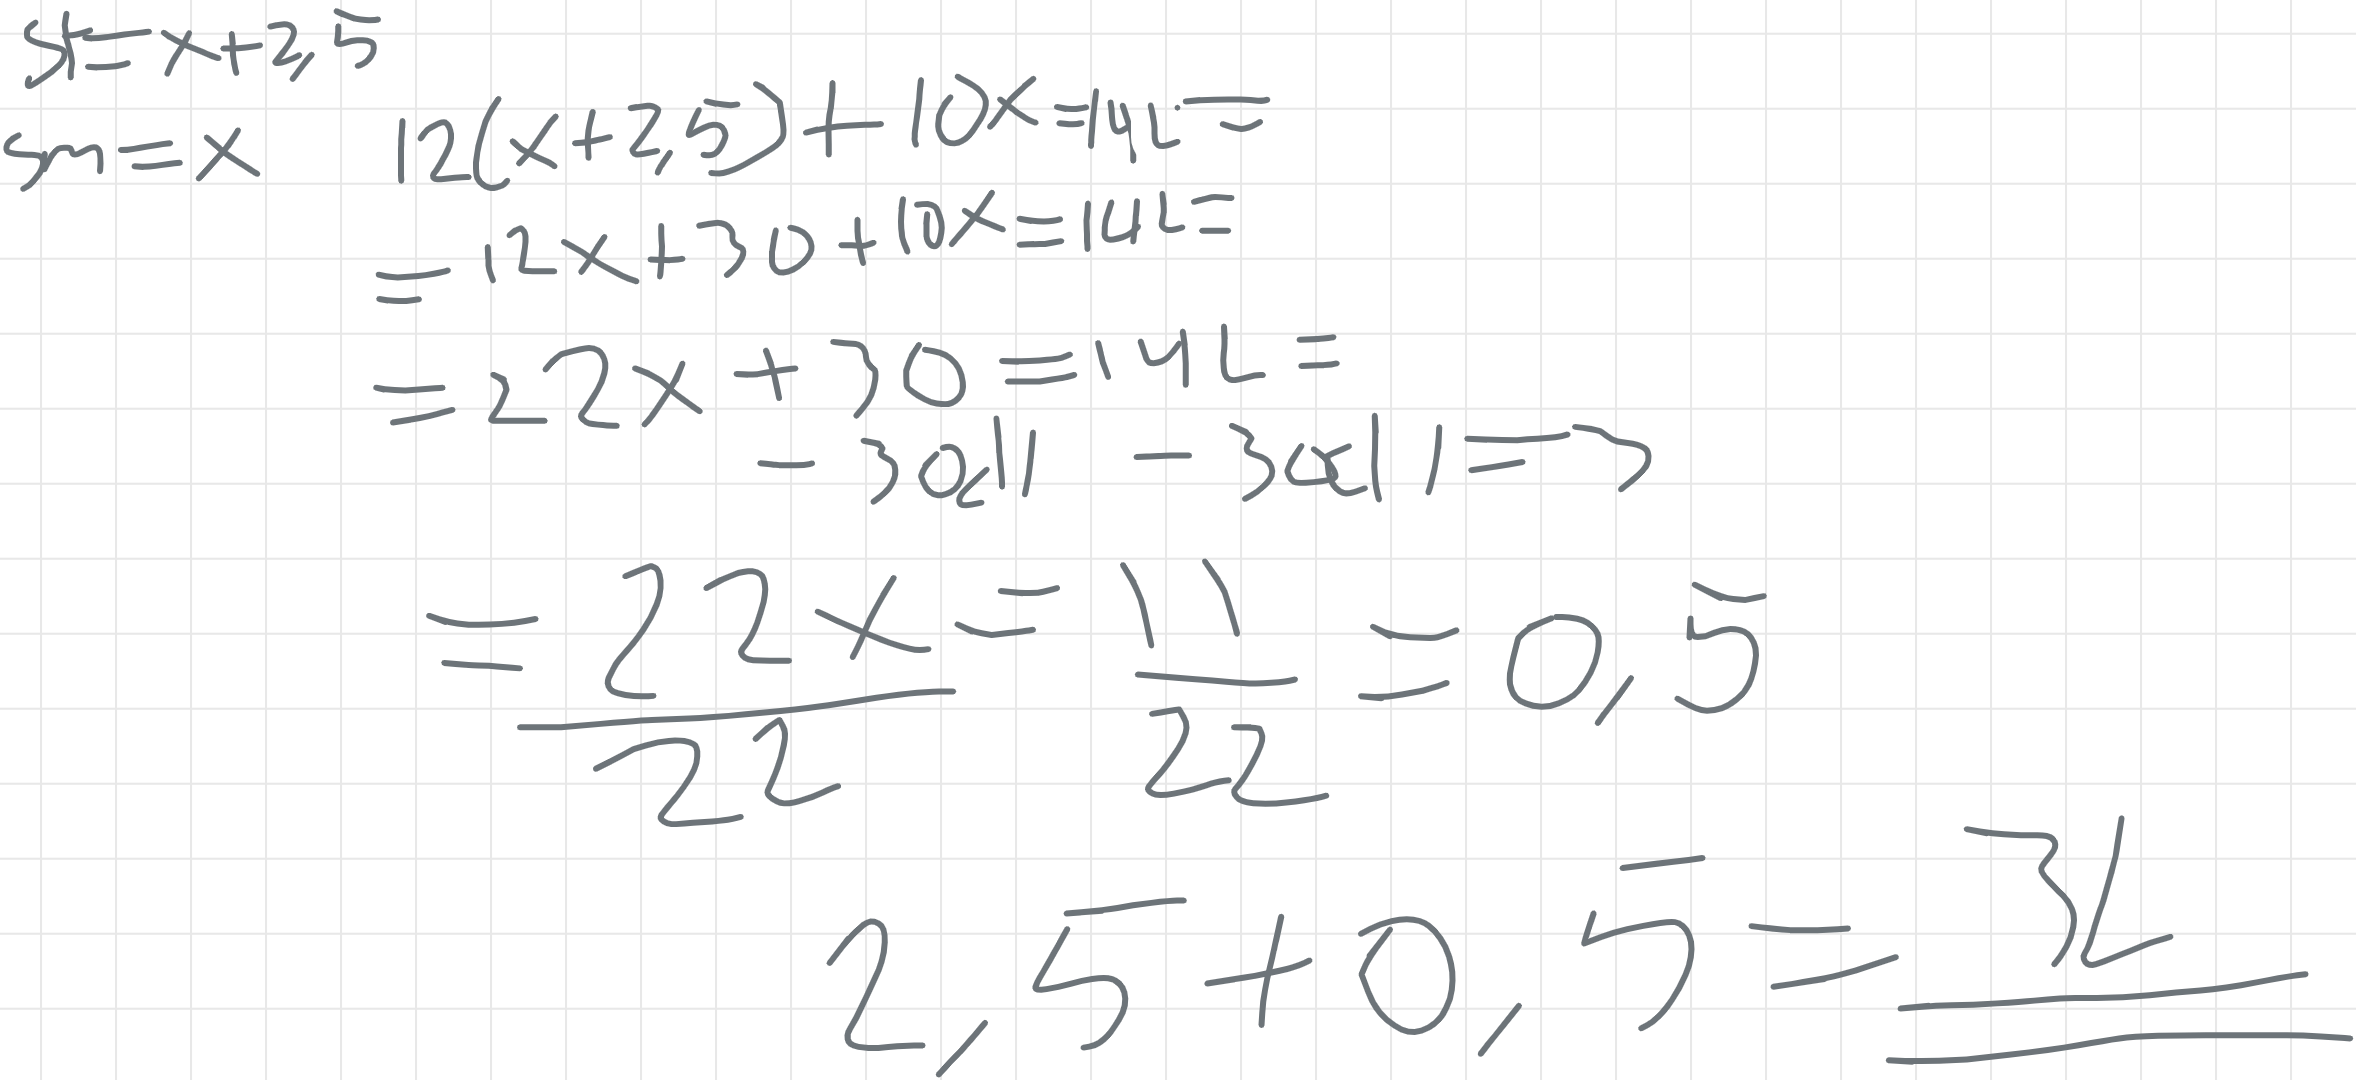 st=x+2,5
sm=x 12(x+2,5)+10x=14L=
=12x+30+10x=14L=
=22x+30=14L=
-30 -30
=22x/22=11/22=0,5
2,5+0,5=3L